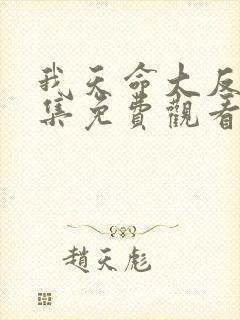 我天命大反
集免費觀看
趙天彪